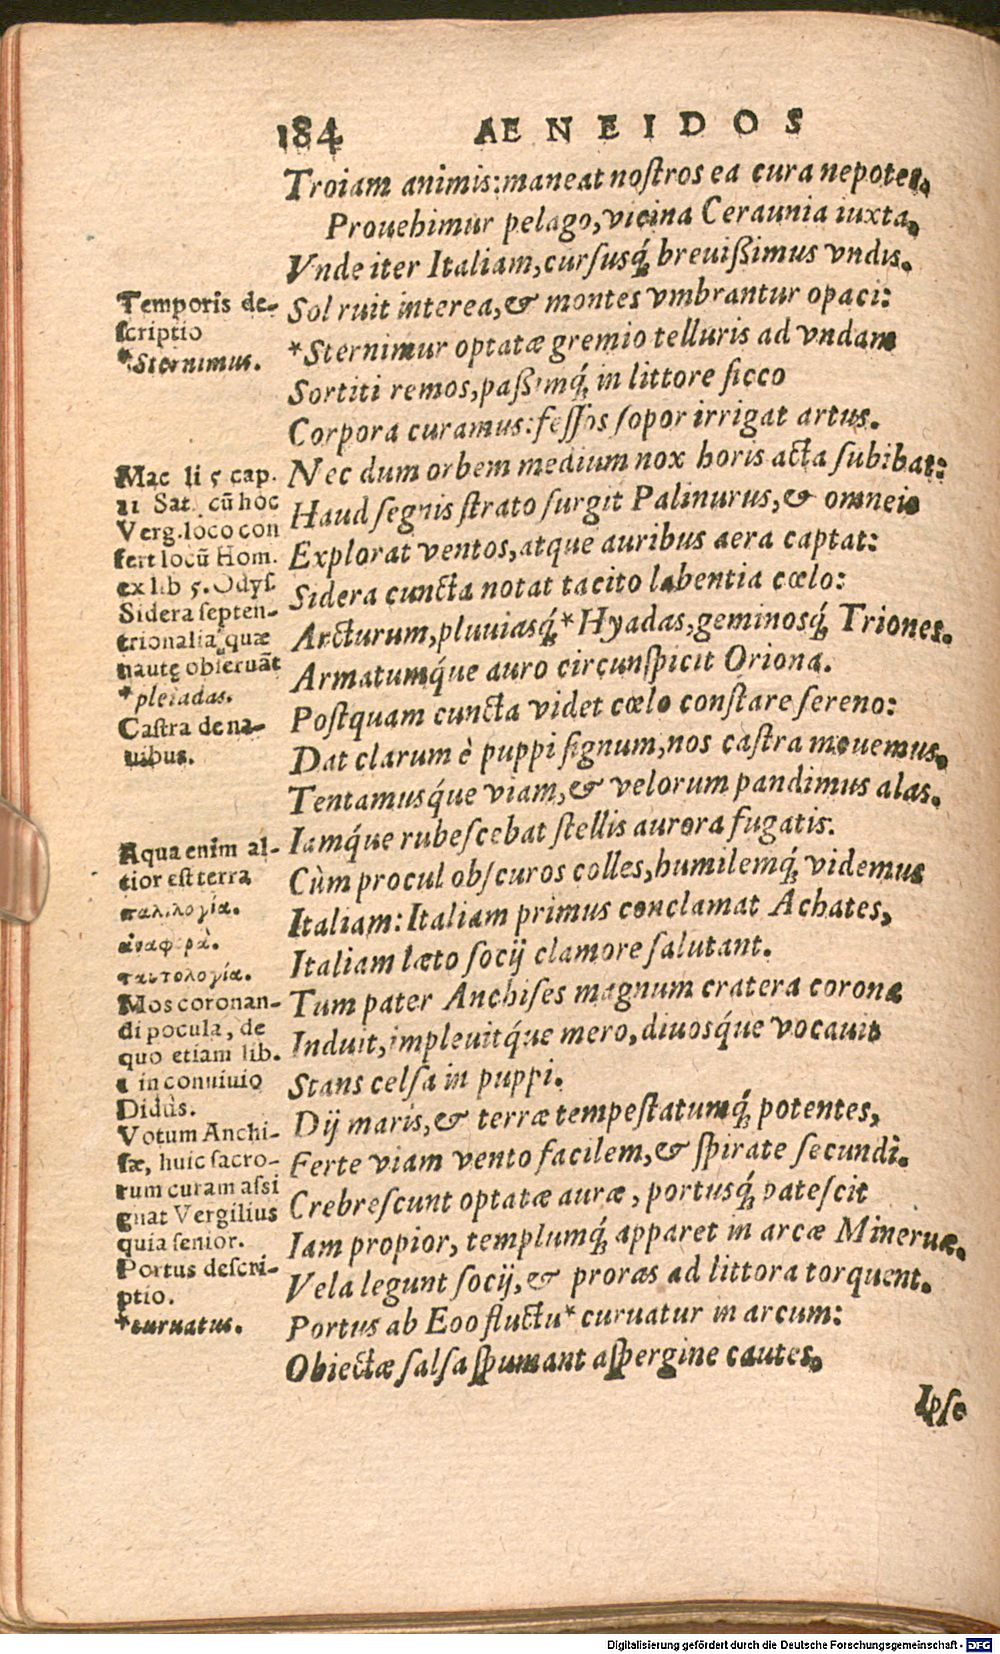 184 AENEIDOS
Troiam animis: maneat noſtros ea cura nepotes.
Prouehimur pelago, vicina Ceraunia iuxta,
Vnde iter Italiam, curſusq́; breuißimus vndis.
Sol ruit interea, & montes vmbrantur opaci:
*Sternimur optatæ gremio telluris ad vndam
Sortiti remos, paßimq́; in littore ſicco
Corpora curamus: feſſos ſopor irrigat artus.
Nec dum orbem medium nox horis acta ſubibat:
Haud ſegnis ſtrato ſurgit Palinurus, & omneis
Explorat ventos, atque auribus aera captat:
Sidera cuncta notat tacito labentia cœlo:
Arcturum, pluuiasq́; *Hyadas, geminosq́; Triones.
Armatumq́ue auro circunſpicit Oriona.
Poſtquam cuncta videt cœlo conſtare ſereno:
Dat clarum è puppi ſignum, nos caſtra mouemus.
Tentamusq́ue viam, & velorum pandimus alas.
Iamq́ue rubeſcebat ſtellis aurora fugatis:
Cùm procul obſcuros colles, humilemq́; videmus
Italiam: Italiam primus conclamat Achates,
Italiam læto ſocij clamore ſalutant.
Tum pater Anchiſes magnum cratera corona
Induit, impleuitq́ue mero, diuosq́ue vocauit
Stans celſa in puppi.
Dij maris, & terræ tempeſtatumq́; potentes,
Ferte viam vento facilem, & ſpirate ſecundi.
Crebreſcunt optatæ auræ, portusq́; pateſcit
Iam propior, templumq́; apparet in arcæ Mineruæ.
Vela legunt ſocij, & proras ad littora torquent.
Portus ab Eoo fluctu *curuatur in arcum:
Obiectæ ſalſa ſpumant aſpergine cautes.
Ipſe
Temporis de-
ſcriptio
*Sternimus.
Mac li 5 cap.
11 Sat. cũ hoc
Verg. loco con
fert locũ Hom.
ex lib 5. Odyſ.
Sidera ſepten-
trionalia quæ
nautę obſeruãt
*pleiadas.
Caſtra de na-
uibus.
Aqua enim al-
tior eſt terra
παλιλογία.
ἀναφορὰ.
ταυτολογία.
Mos coronan-
di pocula, de
quo etiam lib.
1 in conuiuio
Didùs.
Votum Anchi-
ſæ, huic ſacro-
rum curam aſsi
gnat Vergilius
quia ſenior.
Portus deſcri-
ptio.
*curuatus.
Digitalisierung gefördert durch die Deutsche Forschungsgemeinschaft - DFG